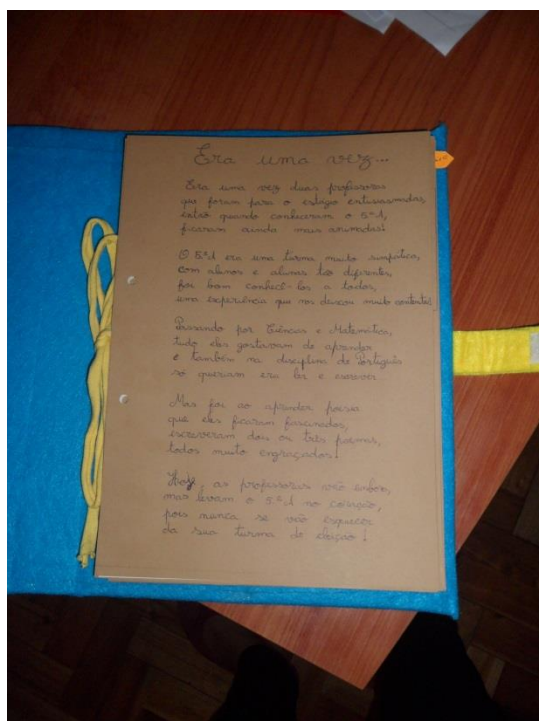 Era uma vez...
Era uma vez duas professoras
que foram para o estágio entusiasmadas,
então quando conheceram o 5.ºA,
ficaram ainda mais animadas!
O 5.ºA era uma turma muito simpática,
com alunos e alunas tão diferentes,
foi bom conhecê-los a todos,
uma experiência que nos deixou muito contentes!
Passando por Ciências e Matemática,
tudo eles gostavam de aprender
e também na disciplina de Português
só queriam era ler e escrever.
Mas foi ao aprender poesia
que eles ficaram fascinados,
escreveram dois ou três poemas,
todos muito engraçados!
Hoje as professoras vão embora,
mas levam o 5.ºA no coração,
pois nunca se vão esquecer
da sua turma de eleição!